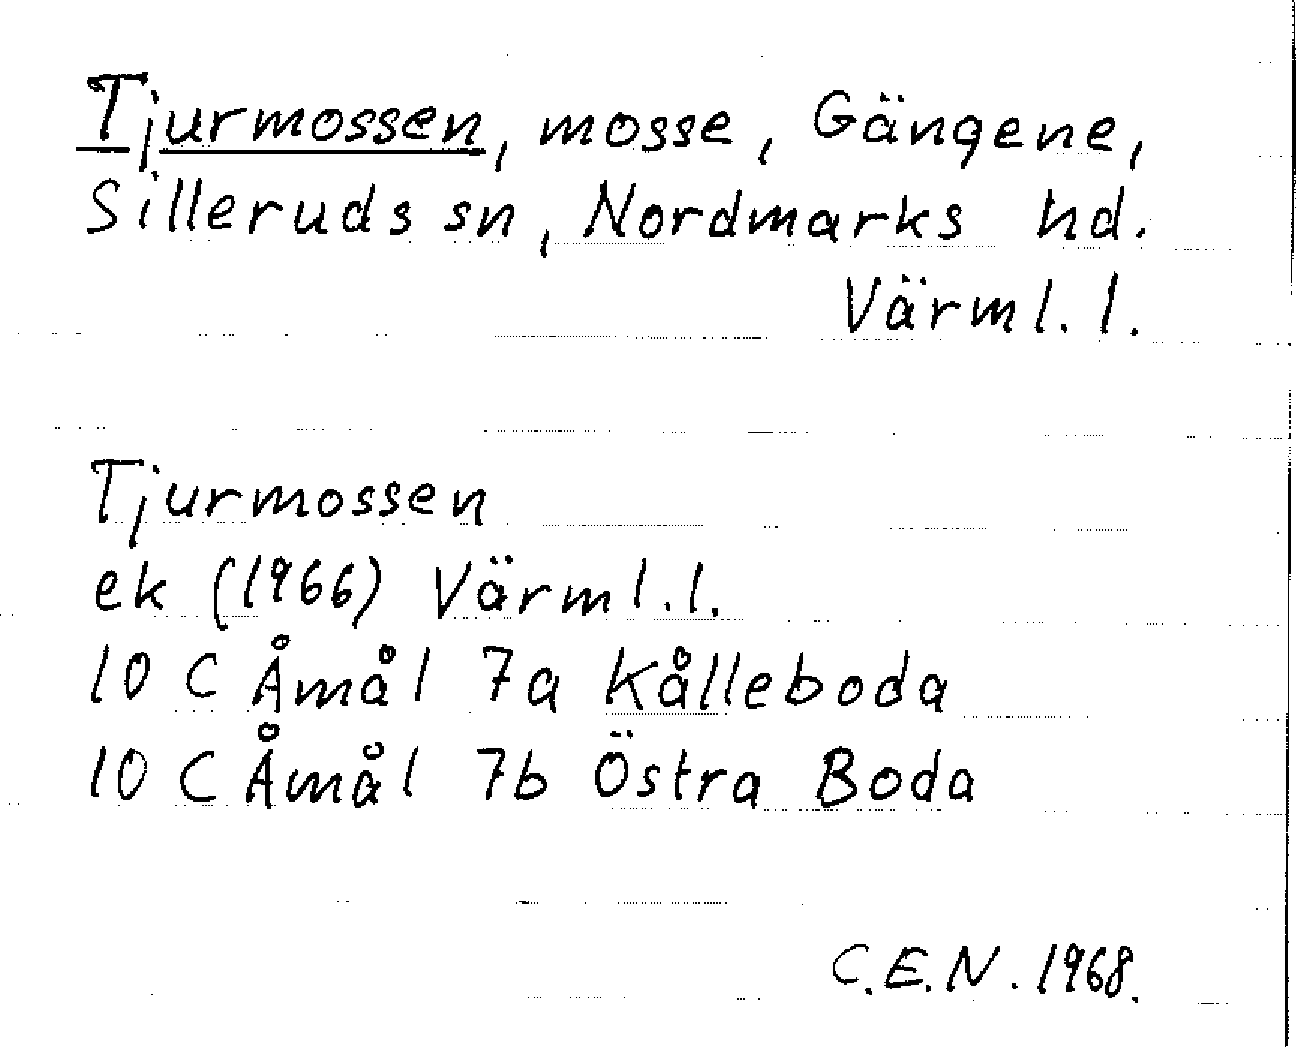 Tjurmossen, mosse, Gängene,
Silleruds sn, Nordmarks hd.
Värml. l.
Tjurmossen
ek (1966) Värml. l.
10 C Åmål 7a Kålleboda
10 C Åmål 7b Östra Boda
C.E.N. 1968.